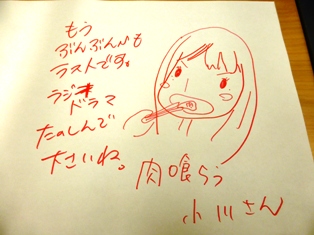 もう
ぶんぶんも
ラストです。
ラジオ
ドラマ
たのしんで
大さいね。
肉喰らう
小川さん